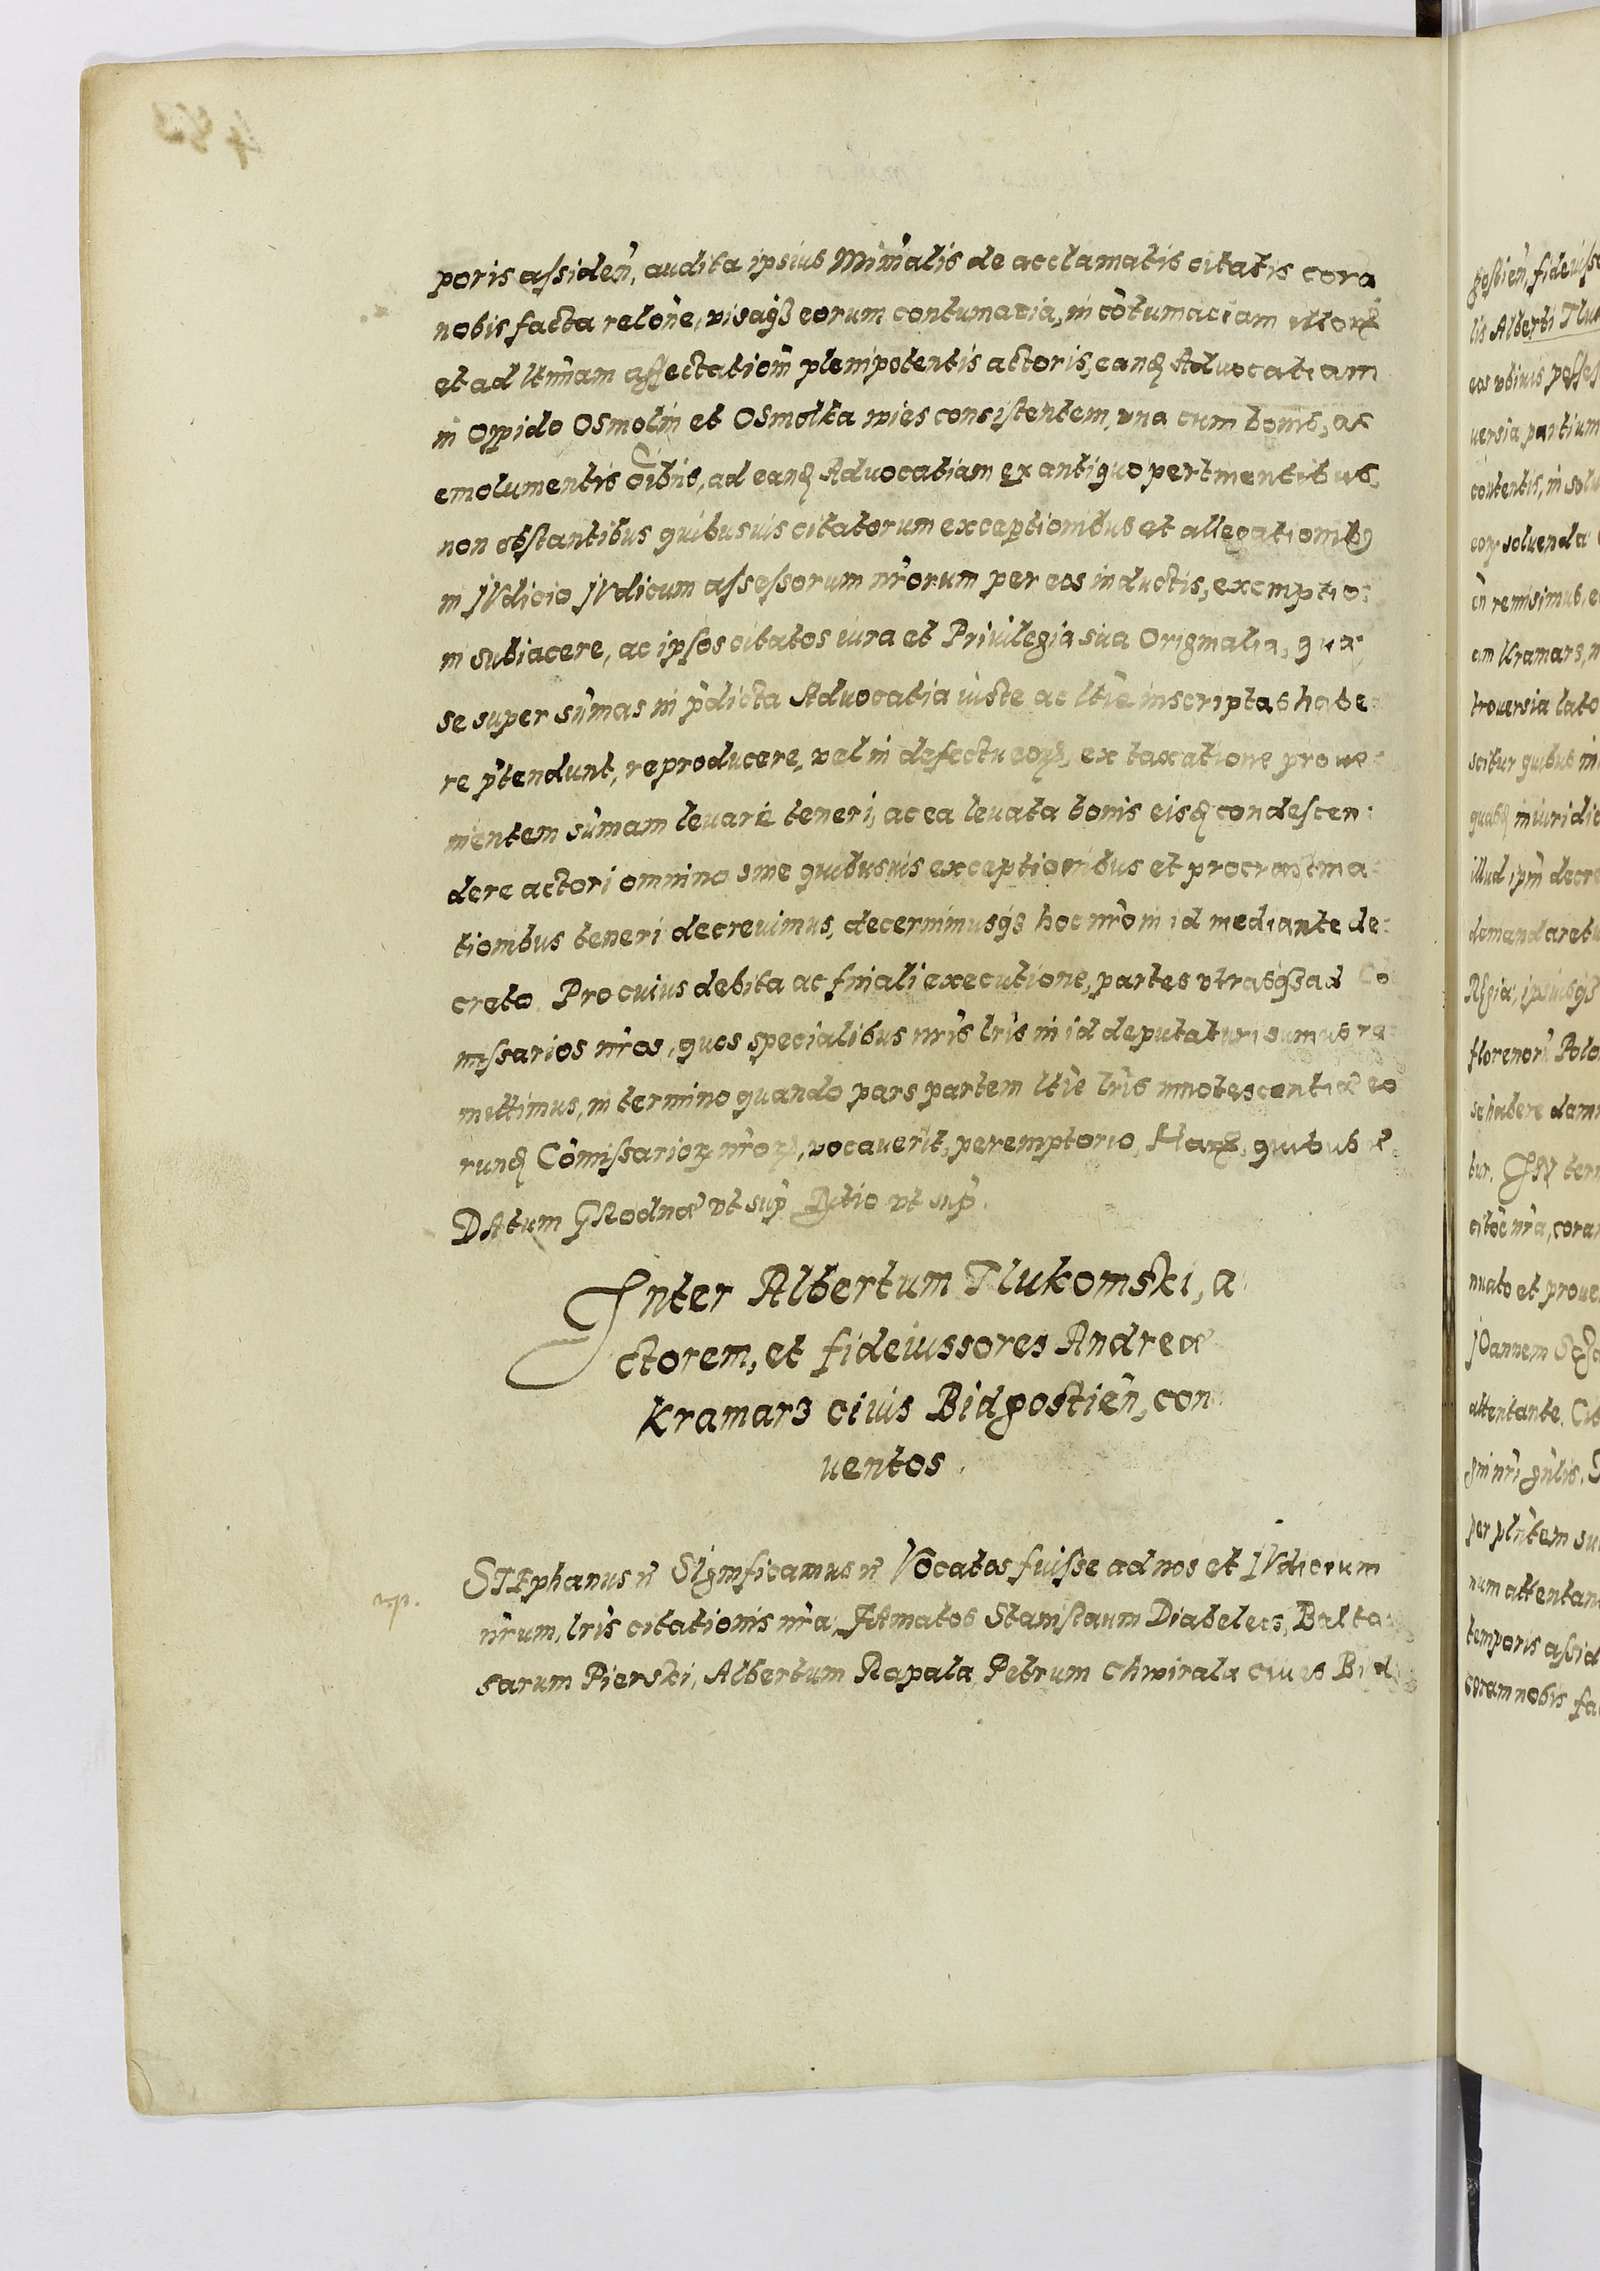 poris assiden̄, audita ipsius Min̄ralis de acclamatis citatis cora
nobis facta relōne, visaq₃ eorum contumacia, in cōtumaciam illorꝝ
et ad ltm̄am affectatiom̄ plenipotentis actoris, eandꝫ Aduocatiam
in oppido Osmolin et Osmolka wies consistentem, vna cum bonis, ac
emolumentis oīb⁹, ad eandꝫ Aduocatiam ex antiquo pertinentibus,
non obstantibus quibusuis citatorum exceptionibus et allegationibꝯ
in jVdicio jVdicum assessorum nr̄orum per eos inductis, exemptio:
ni subiacere, ac ipsos citatos iura et Priuilegia sua Originalia, quæ
se super sūmas in p̄dicta Aduocatia iuste ac ltīe inscriptas habe:
re p̄tendunt, reproducere, vel in defectu eorꝝ, ex taxatione proue:
nientem sūmam leuare teneri, ac ea leuata bonis eisdꝫ condescen:
dere actori omnino sine quibusuis exceptionibus et procrastina:
tionibus teneri decreuimus, decernimusq₃ hoc nr̄o in id mediante de:
creto. Pro cuius debita ac finali executione, partes vtrasq₃ ad Cō
missarios nr̄os, quos specialibus nr̄is lr̄is in id deputaturi sumus re:
mittimus, in termino quando pars partem ltīe lr̄is innotescentiæ eo
rundꝫ Cōmissariorꝝ nr̄orꝝ, vocauerit, peremptorio, Harꝝ, quibus &.
DAtum GRodnæ vt sup̄ Rl̄tio vt sup̄.
Inter Albertum Tlukomski, a
ctorem, et fideiussores Andreæ
Kramarz ciuis Bidgostien̄, con
uentos.
STEphanus &̄ Significamus &̄ Vocatos fuisse ad nos et IVdicium
nr̄um, lr̄is citationis nr̄æ, FAmatos Stanislaum Diabelecz, Balta
sarum Pierski, Albertum Rapala, Petrum Chwirala ciues Bid
gostien̄, fideiusso
lis Alberti Tluk
eos vbiuis posses
uersia partium
contentis, in solu
eorꝝ soluenda
em Kramarz, n
trouersia lato
scitur quibus in
illud ipm̄ decre
demandaretu
Regiæ, ipsiusq₃
florenorū Polo
se habere dam
tur. IN term
nuato et proue
jOannem
attentante. Cit
num attentan
temporis assid
coram nobis fa